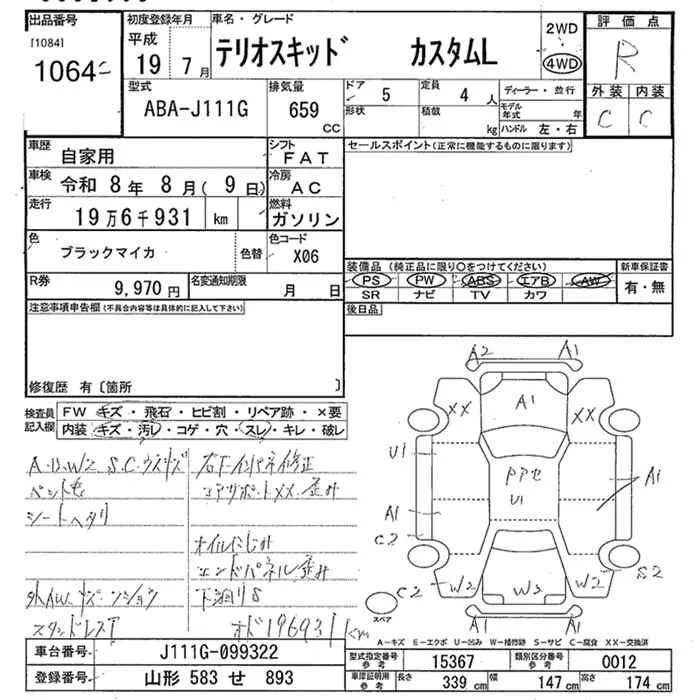 出品番号 初度登録年月 車名・グレード 評価点
[1084] 平成 2WD
1064 19年 7月 テリオスキッド カスタムL 4WD R
型式 排気量 ドア 5 定員 4人 ディーラー・並行 外装 内装
ABA-J111G 659 形状 積載 モデル年式 年 C C
CC kg ハンドル 左・右
車歴 自家用 シフト FAT セールスポイント(正常に機能するものに限ります)
車検 令和 8年 8月( 9日) 冷房 AC
走行 19万6千931 km 燃料 ガソリン
色 ブラックマイカ 色替 色コード X06
装備品 (純正品に限り○をつけてください) 新車保証書
R券 9,970円 名変通知期限 月 日 PS PW ABS エアB AW 有・無
SR ナビ TV カワ
注意事項申告欄(不具合内容等は具体的に記入して下さい) 後日品
修復歴 有〔箇所 〕
検査員記入欄 FW キズ・飛石・ヒビ割・リペア跡・×要
内装 キズ・汚レ・コゲ・穴・スレ・キレ・破レ
A.U.W2 S.C.ウスキズ
ペット毛
シートヘタリ
スタンドレスT
右F インパネ修正
コアサポートXX 歪み
オイルにじみ
エンドパネル歪み
下廻りS
オド196931km
A2 A1
XX A1 XX
U1 PPセ U1 A1
A1
C2
C2 W2 W2 W2 S2
スペア A1 A1
A-キズ E-エクボ U-凹み W-補修跡 S-サビ C-腐食 XX-交換済
車台番号 J111G-099322 型式指定番号 参考 15367 類別区分番号 参考 0012
登録番号 山形 583 せ 893 車庫証明用 参考 長さ 339 cm 幅 147 cm 高さ 174 cm